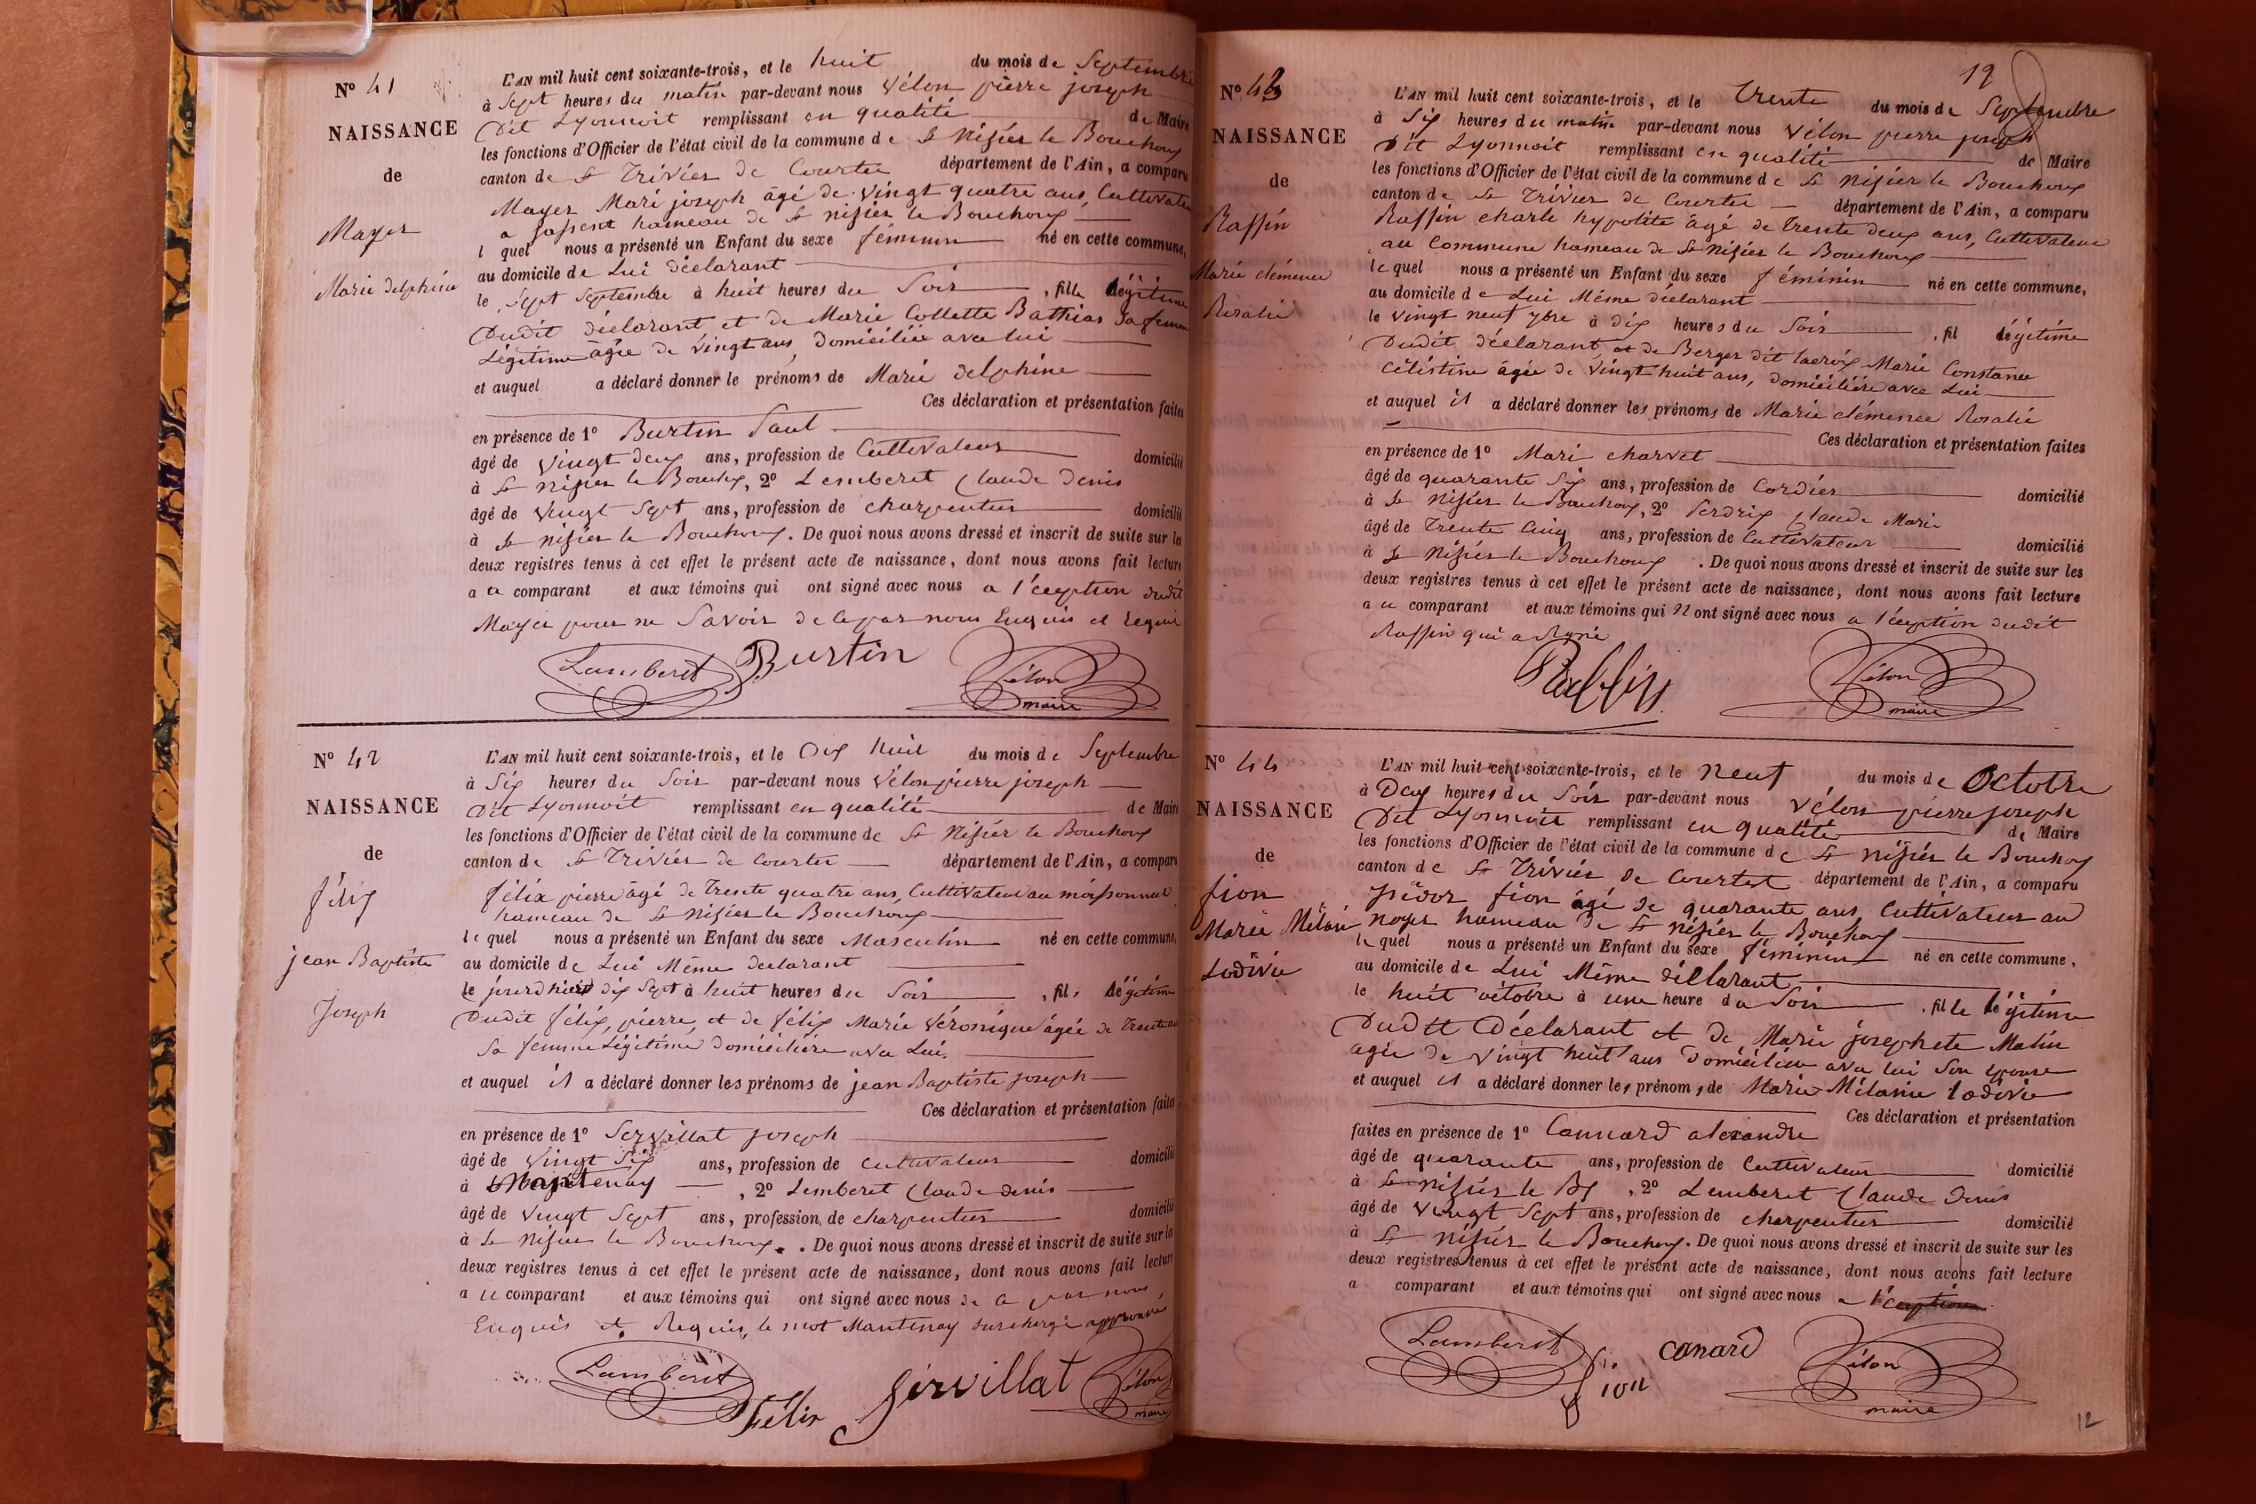 N° 41
NAISSANCE
de
Mayer
Marie delphine
L'AN mil huit cent soixante-trois, et le huit du mois de Septembre
à Sept heures du matin par-devant nous Vélon pierre joseph
Dit Lyonnoit remplissant en qualité de Maire
les fonctions d'Officier de l'état civil de la commune de St Nisier le Bouchoux
canton de St Trivier de Courtes département de l'Ain, a comparu
Mayer Mari joseph âgé de vingt quatre ans, Cultivateur
a hameau de St nisier le Bouchoux
l quel nous a présenté un Enfant du sexe féminin né en cette commune,
au domicile de Lui déclarant
le Sept Septembre à huit heures du Soir, fille légitime
Dudit déclarant et de Marie Collette Bathias Sa femme
Légitime âgée de vingt ans, domiciliée avec lui
et auquel a déclaré donner le prénoms de Marie delphine
Ces déclaration et présentation faites
en présence de 1° Burtin Paul
âgé de vingt deux ans, profession de Cultivateur domicilié
à St nisier le Bouchoux, 2° Lemberet Claude denis
âgé de vingt Sept ans, profession de charpentier domicilié
à St nisier le Bouchoux. De quoi nous avons dressé et inscrit de suite sur les
deux registres tenus à cet effet le présent acte de naissance, dont nous avons fait lecture
a ce comparant et aux témoins qui ont signé avec nous a l'éception dudit
Mayer pour ne Savoir de ce par nous Enquis et requis
Lamberet Burtin Vélon
maire
N° 42
NAISSANCE
de
félix
jean Baptiste
Joseph
L'AN mil huit cent soixante-trois, et le Dix huit du mois de Septembre
à Six heures du Soir par-devant nous Vélon pierre joseph
Dit Lyonnoit remplissant en qualité de Maire
les fonctions d'Officier de l'état civil de la commune de St Nisier le Bouchoux
canton de St Trivier de Courtes département de l'Ain, a comparu
félix pierre âgé de trente quatre ans, Cultivateur au moissonnat
hameau de St Nisier le Bouchoux
le quel nous a présenté un Enfant du sexe Masculin né en cette commune,
au domicile de Lui Même déclarant
le dix Sept à huit heures du Soir, fils légitime
Dudit félix, pierre, et de félix Marie Véronique âgée de trente ans
Sa femme Légitime domiciliée avec Lui.
et auquel il a déclaré donner les prénoms de jean Baptiste joseph
Ces déclaration et présentation faites
en présence de 1° Servillat joseph
âgé de vingt Six ans, profession de cultivateur domicilié
à Mantenay, 2° Lemberet Claude denis
âgé de vingt Sept ans, profession de charpentier domicilié
à St Nisier le Bouchoux. De quoi nous avons dressé et inscrit de suite sur les
deux registres tenus à cet effet le présent acte de naissance, dont nous avons fait lecture
a ce comparant et aux témoins qui ont signé avec nous de ce par nous
Enquis et Requis, le mot Mantenay surchargé approuvé
Lamberet félix Servillat Vélon
maire
19
N° 43
NAISSANCE
de
Raffin
Marie clémence
Rosalie
L'AN mil huit cent soixante-trois, et le trente du mois de Septembre
à Six heures du matin par-devant nous Vélon pierre joseph
Dit Lyonnoit remplissant en qualité de Maire
les fonctions d'Officier de l'état civil de la commune de St Nisier le Bouchoux
canton de St Trivier de Courtes département de l'Ain, a comparu
Raffin charle hypolite âgé de trente deux ans, Cultivateur
au Commune hameau de St Nisier le Bouchoux
le quel nous a présenté un Enfant du sexe féminin né en cette commune,
au domicile de Lui Même déclarant
le vingt neuf 7bre à dix heures du Soir, fil légitime
Dudit déclarant, et de Berger dit lacroix Marie Constance
Célestine âgée de vingt huit ans, domiciliée avec Lui
et auquel il a déclaré donner les prénoms de Marie clémence Rosalie
Ces déclaration et présentation faites
en présence de 1° Mari charvet
âgé de quarante Six ans, profession de Cordier domicilié
à St Nisier le Bouchoux, 2° Perdrix Claude Marie
âgé de trente Cinq ans, profession de Cultivateur domicilié
à St Nisier le Bouchoux. De quoi nous avons dressé et inscrit de suite sur les
deux registres tenus à cet effet le présent acte de naissance, dont nous avons fait lecture
a ce comparant et aux témoins qui n'ont signé avec nous a l'éception dudit
Raffin qui a Signé
Raffin Vélon
maire
N° 44
NAISSANCE
de
fion
Marie Mélanie
Lodivie
L'AN mil huit cent soixante-trois, et le neuf du mois de Octobre
à Deux heures du Soir par-devant nous Vélon pierre joseph
Dit Lyonnoit remplissant en qualité de Maire
les fonctions d'Officier de l'état civil de la commune de St nisier le Bouchoux
canton de St Trivier de Courtes département de l'Ain, a comparu
isidor fion âgé de quarante ans Cultivateur au
noyer hameau de St nisier le Bouchoux
le quel nous a présenté un Enfant du sexe féminin né en cette commune,
au domicile de Lui Même déclarant
le huit octobre à une heure du Soir, fille légitime
Dudit Déclarant et de Marie josephete Matin
agée de vingt huit ans Domiciliée avec lui Son épouse
et auquel il a déclaré donner les prénoms de Marie Mélanie lodivie
Ces déclaration et présentation
faites en présence de 1° Cannard alexandre
âgé de quarante ans, profession de Cultivateur domicilié
à St nisier le Bx, 2° Lemberet Claude denis
âgé de vingt Sept ans, profession de charpentier domicilié
à St nisier le Bouchoux. De quoi nous avons dressé et inscrit de suite sur les
deux registres tenus à cet effet le présent acte de naissance, dont nous avons fait lecture
a comparant et aux témoins qui ont signé avec nous a l'éception
Lamberet fion canard Vélon
maire
12